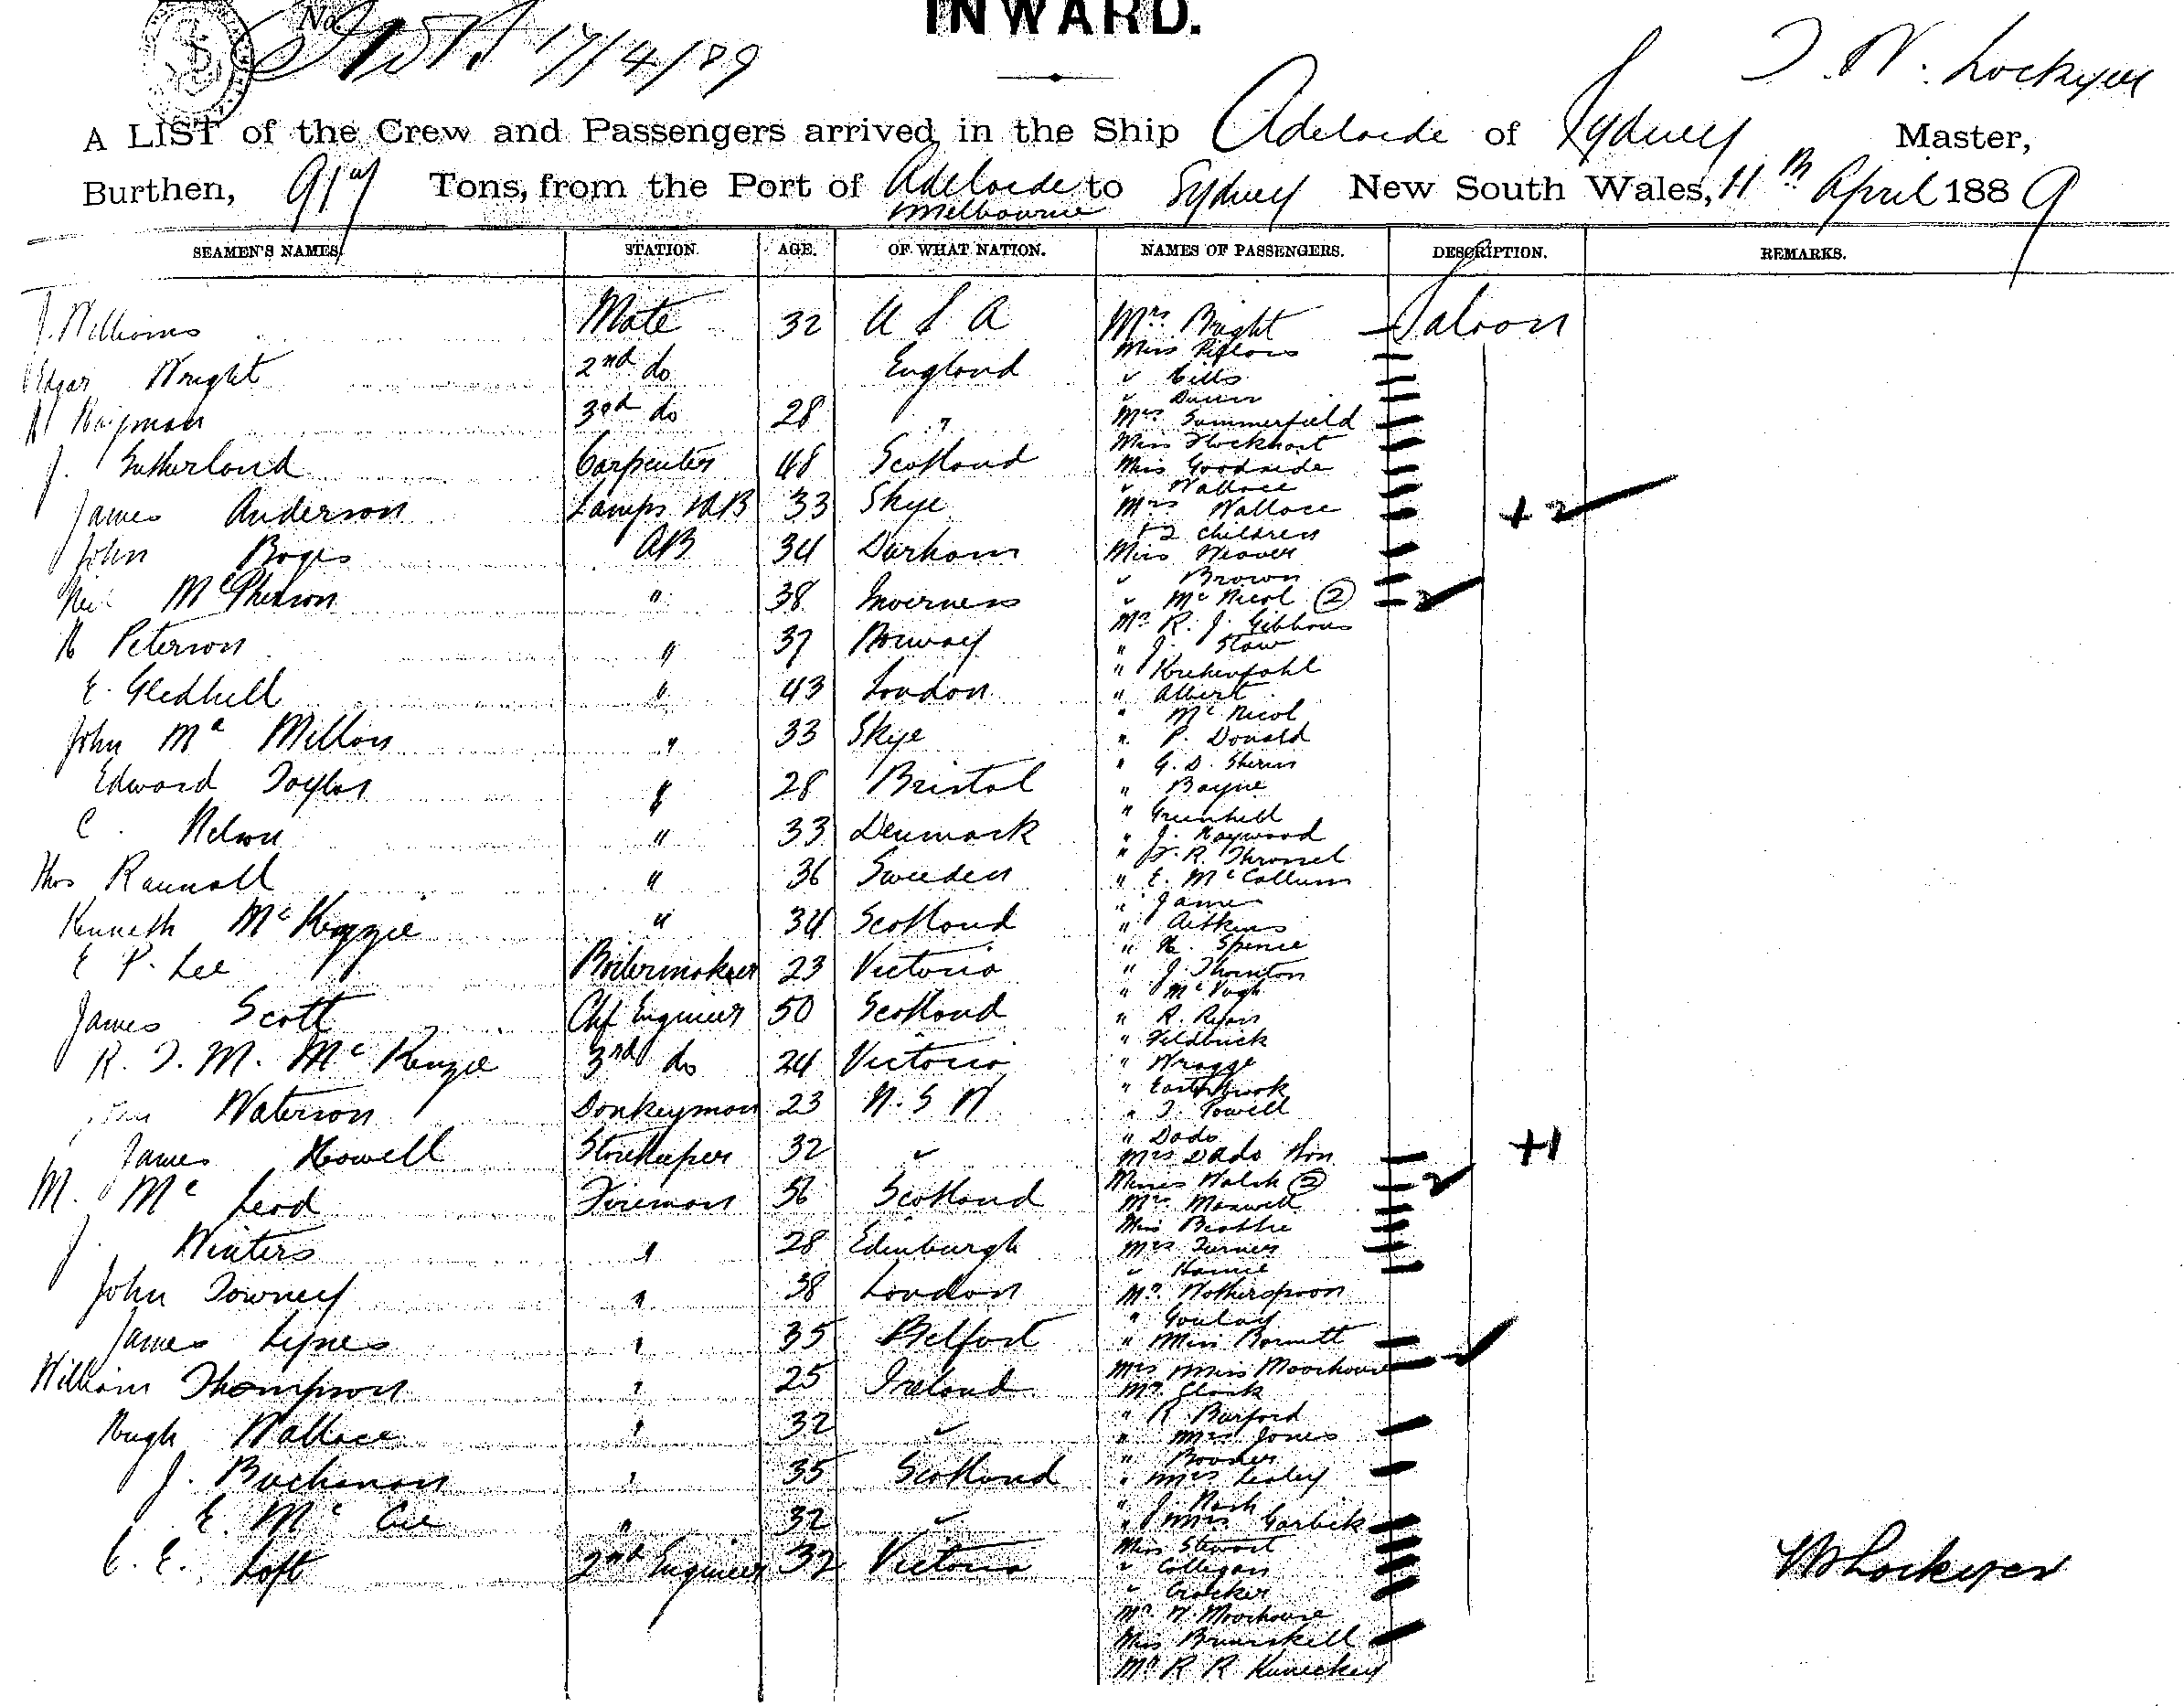 No. 17/4/89
INWARD.
T. W. Lockyer
A LIST of the Crew and Passengers arrived in the Ship Adelaide of Sydney Master,
Burthen, 917 Tons, from the Port of Adelaide Melbourne to Sydney New South Wales, 11th April 1889
SEAMEN'S NAMES. STATION. AGE. OF WHAT NATION. NAMES OF PASSENGERS. DESCRIPTION. REMARKS.
J. Williams Mate 32 U S A
Edgar Wright 2nd do England
3rd do 28 "
J. Sutherland Carpenter 48 Scotland
James Anderson Lamps & AB 33 Skye
John AB 34 Durham
Neil McPherson " 38 Inverness
Peterson " 37 Norway
E. Gledhill " 43 London
John Mc Millan " 33 Skye
Edward Taylor " 28 Bristol
C. Nelson " 33 Denmark
Thos Rannall " 36 Sweden
Kenneth McKenzie " 34 Scotland
E P. Lee Boilermaker 23 Victoria
James Scott Chf Engineer 50 Scotland
R. T. M. McKenzie 3rd do 24 Victoria
Waterson Donkeyman 23 N. S W
James Howell Storekeeper 32 "
M. Mc Leod Fireman 36 Scotland
J. Winters " 28 Edinburgh
John Downey " 38 London
James Lynes " 35 Belfast
William Thompson " 25 Ireland
Hugh Wallace " 32 "
J. Buchanan " 35 Scotland
E. Mc Cue " 32 "
C. E. Loft 2nd Engineer 32 Victoria
Mrs Bright Saloon
Miss
"
" Dunn
Mrs Summerfield
Miss Flockhart
Miss Goodside
" Wallace
Mrs Wallace
+ 2 children +2
Miss Weaver
" Brown
" McNicol ② 2
Mr R. J. Gibbons
" J. Slow
"
" Albert
" McNicol
" P. Donald
" G. D.
" Bayne
" Greenhill
" J. Haywood
" F. R. Throssel
" E. McCallum
" James
" Aitkins
" H. Spence
" J. Thornton
"
" R. Ryan
" Feldbrick
" Wragge
" Easterbrook
" T. Powell
" Dado
Mrs Dado +1
Misses Walsh ② 2
Mrs Maxwell
Miss Beattie
Mrs Turner
"
Mr Wotherspoon
" Goulay
" Miss Barnett
Mrs Miss Moorhouse
Mr Clark
" R. Burford
" Mrs Jones
"
" Mrs Lealey
" J. Nash
" Mrs Garbick
Miss Stewart
" Colligan
" Crocker
Mr W. Moorhouse
Miss Brunskill
Mr R R
Lockyer